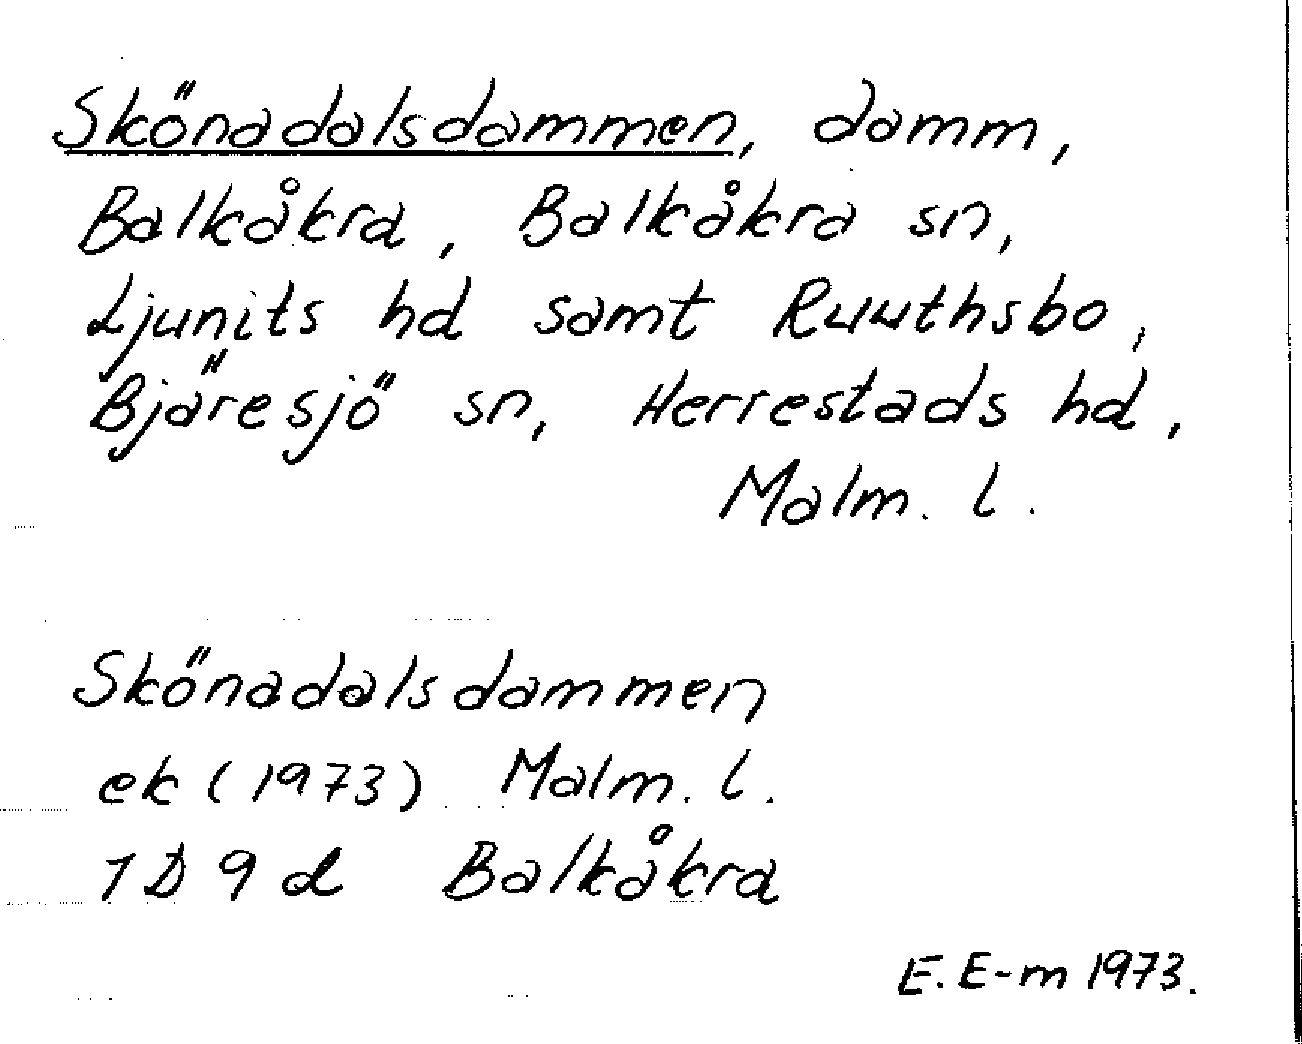 Skönadalsdammen, damm,
Balkåkra, Balkåkra sn,
Ljunits hd samt Ruuthsbo,
Bjäresjö sn, Herrestads hd,
Malm. l.
Skönadalsdammen
ek (1973) Malm. l.
1D 9d Balkåkra
E. E-m 1973.